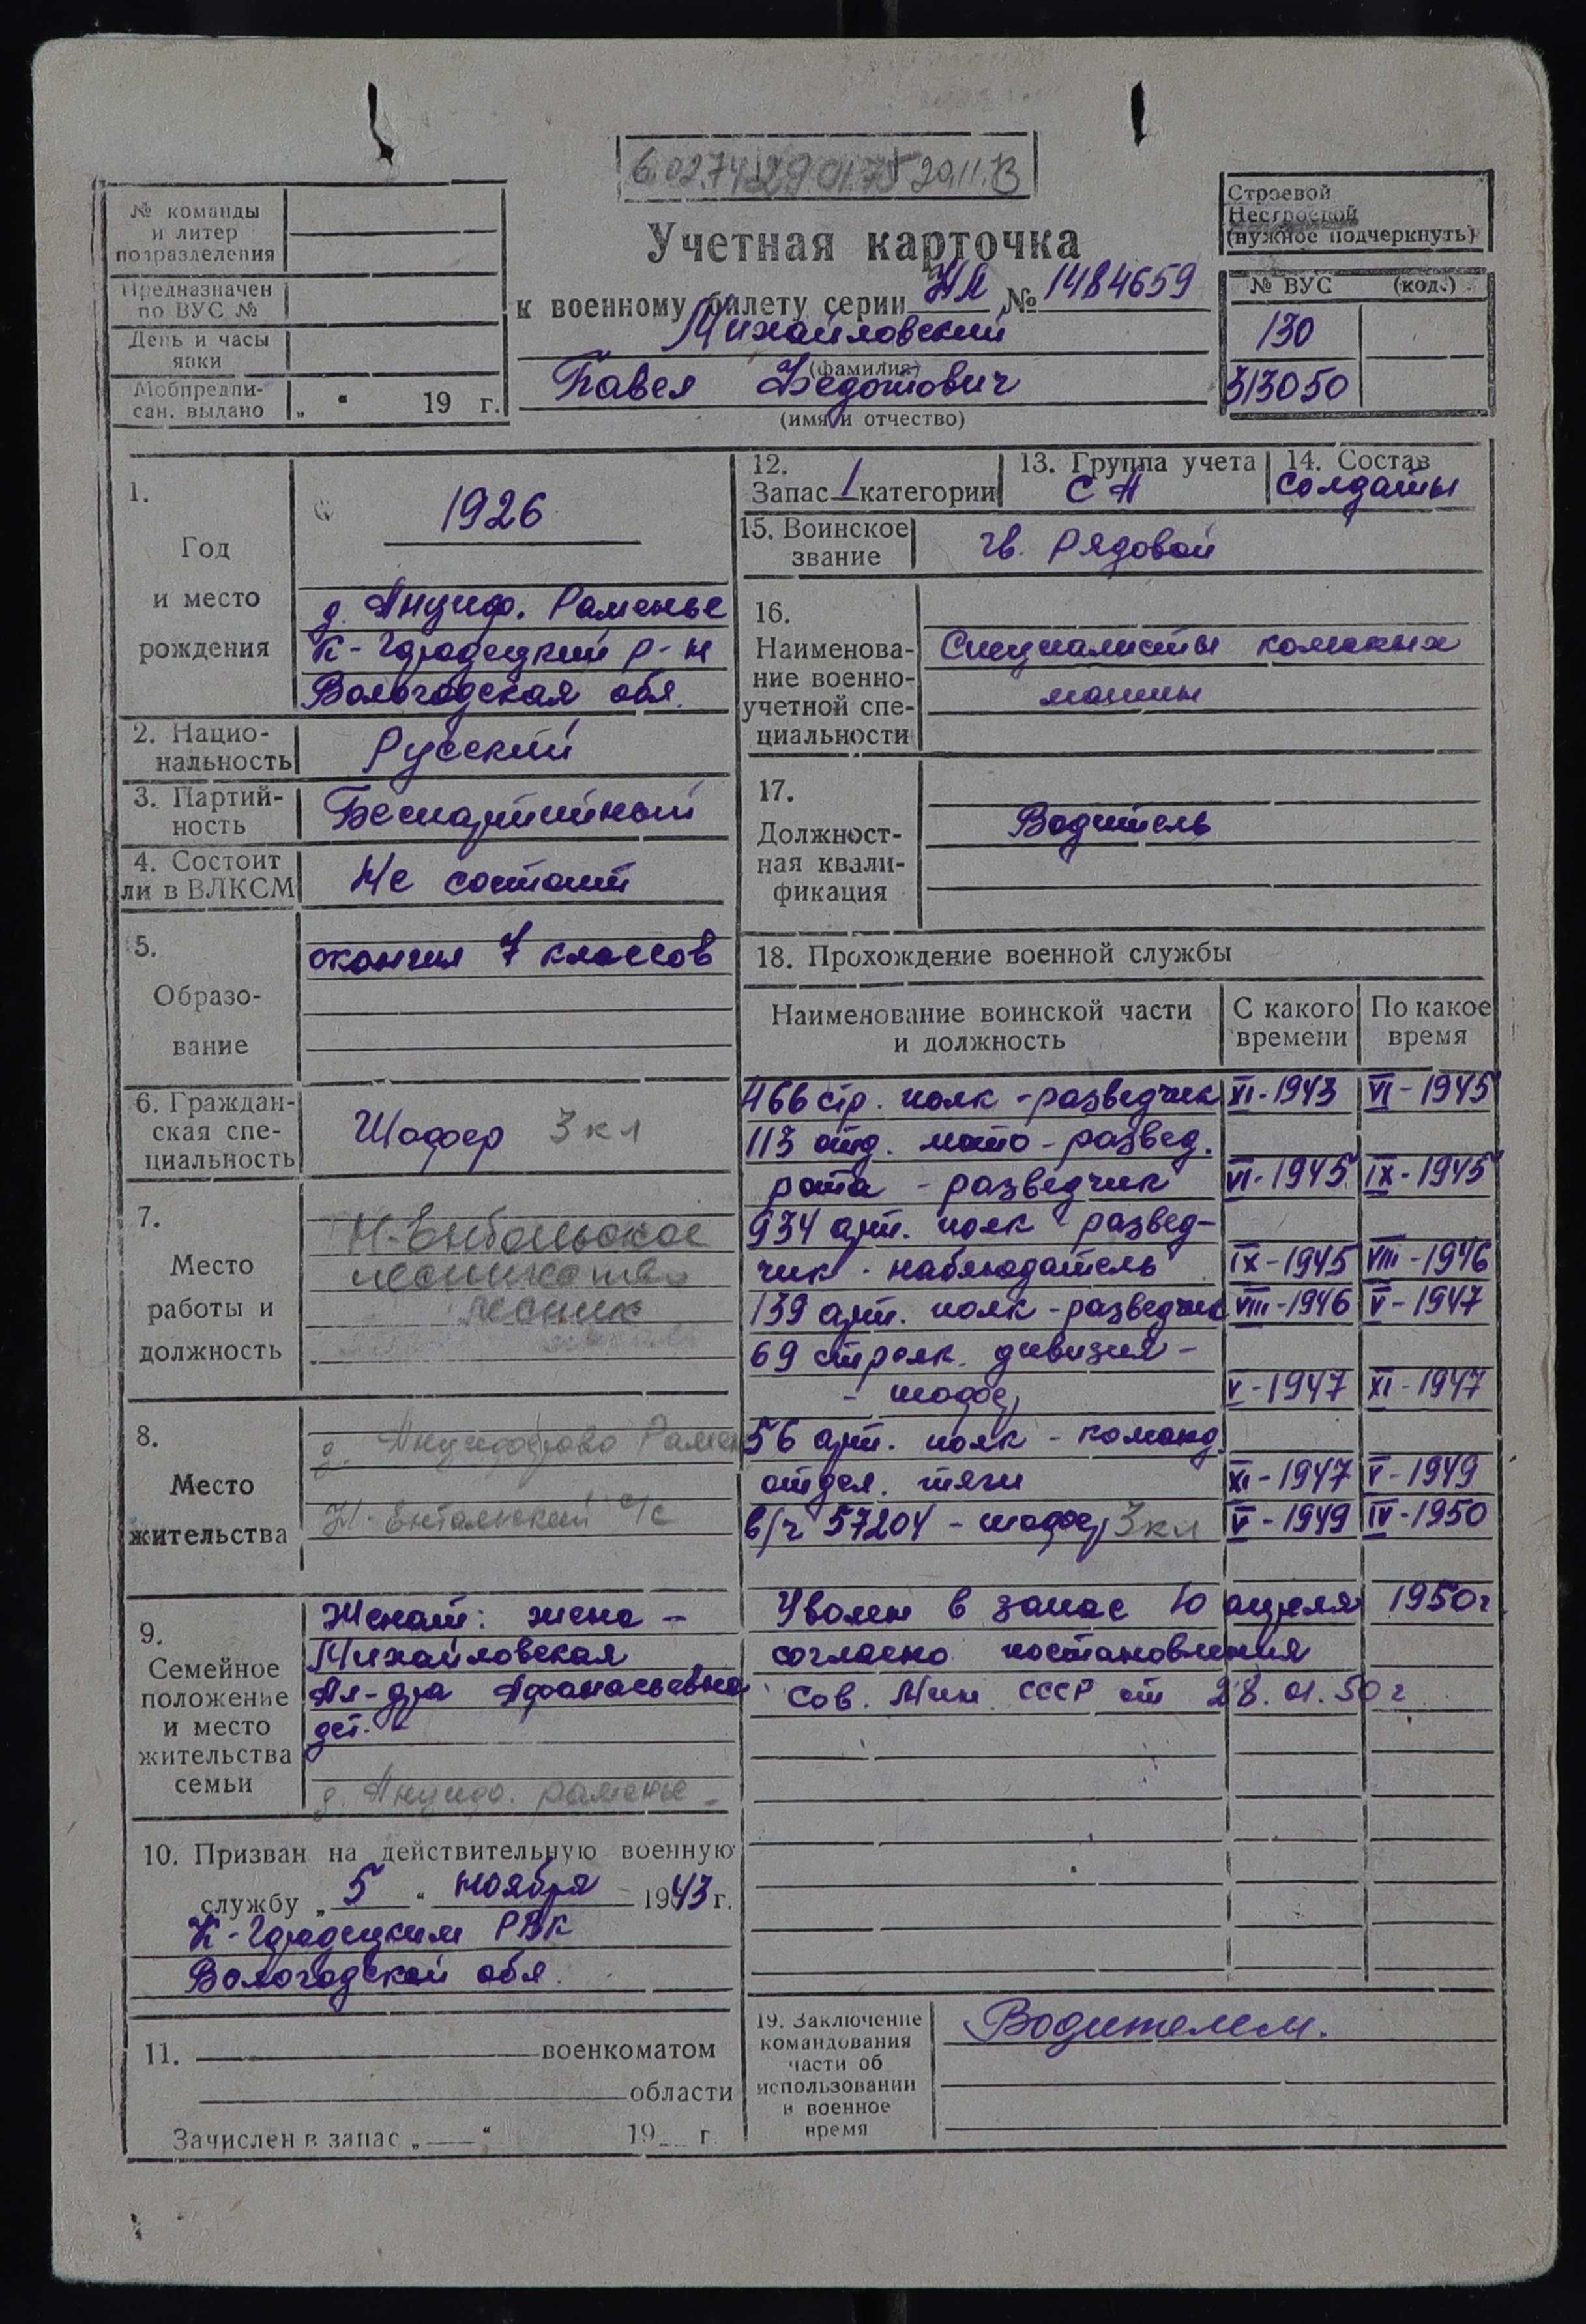 6.02.74 29 0175 2911.В
№ команды
и литер
подразделения
Предназначен
по ВУС №
День и часы
явки
Мобпредпи-
сан. выдано „ “ 19 г.
Учетная карточка
к военному билету серии НЯ № 1484659
Михайловский
(фамилия)
Павел Федотович
(имя и отчество)
Строевой
Нестроевой
(нужное подчеркнуть)
№ ВУС (код.)
130
313050
1.
Год
и место
рождения
1926
д. Анциф. Раменье
К-Городецкий р-н
Вологодская обл.
2. Нацио-
нальность
Русский
3. Партий-
ность
Беспартийный
4. Состоит
ли в ВЛКСМ
Не состоит
5.
Образо-
вание
окончил 7 классов
6. Граждан-
ская спе-
циальность
Шофер 3 кл
7.
Место
работы и
должность
Н-Енбальское
лесничество
лесник
8.
Место
жительства
д. Анцифорово Рамен
Н-Ентальский с/с
9.
Семейное
положение
и место
жительства
семьи
Женат: жена -
Михайловская
Ал-дра Афанасьевна
дет. -
д. Анциф. раменье -
10. Призван на действительную военную
службу „ 5 “ ноября 1943 г.
К-Городецким РВК
Вологодской обл.
11. военкоматом
области
Зачислен в запас „ “ 19 г.
12.
Запас 1 категории
13. Группа учета
СА
14. Состав
Солдаты
15. Воинское
звание
гв. Рядовой
16.
Наименова-
ние военно-
учетной спе-
циальности
Специалисты колесных
машин
17.
Должност-
ная квали-
фикация
Водитель
18. Прохождение военной службы
Наименование воинской части
и должность
С какого
времени
По какое
время
466 стр. полк - разведчик XI-1943 VI-1945
113 отд. мото-развед.
рота - разведчик VI-1945 IX-1945
934 арт. полк развед-
чик - наблюдатель IX-1945 VIII-1946
139 арт. полк - разведчик VIII-1946 V-1947
69 стрелк. дивизия -
- шофер V-1947 XI-1947
56 арт. полк - команд.
отдел. тяги XI-1947 V-1949
в/ч 57204 - шофер 3 кл V-1949 IV-1950
Уволен в запас 10 апреля 1950 г.
согласно постановления
Сов. Мин. СССР от 28.01.50 г
19. Заключение
командования
части об
использовании
в военное
время
Водителем.